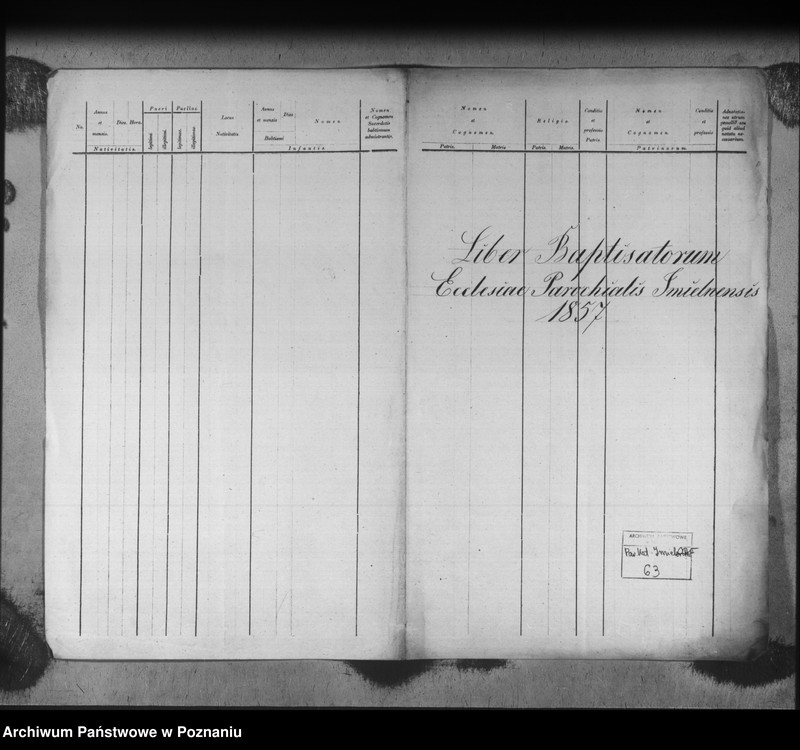 No.
Annus et mensis.
Dies.
Hora.
Nativitatis
Pueri
legitimi.
illegitimi.
Puellae
legitimae.
illegitimae.
Locus Nativitatis
Annus et mensis
Dies
Baptismi
Nomen
Infantis
Nomen et Cognomen Sacerdotis baptismum administrantis.
Nomen et Cognomen.
Patris.
Matris
Religio
Patris
Matris.
Conditio et professio Patris.
Nomen et Cognomen.
Conditio et professio
Patrinorum.
Liber Baptisatorum
Ecclesiae Parochialis Imielnensis
1857
ARCHIWUM PAŃSTWOWE
Par. kat.
63
Archiwum Państwowe w Poznaniu